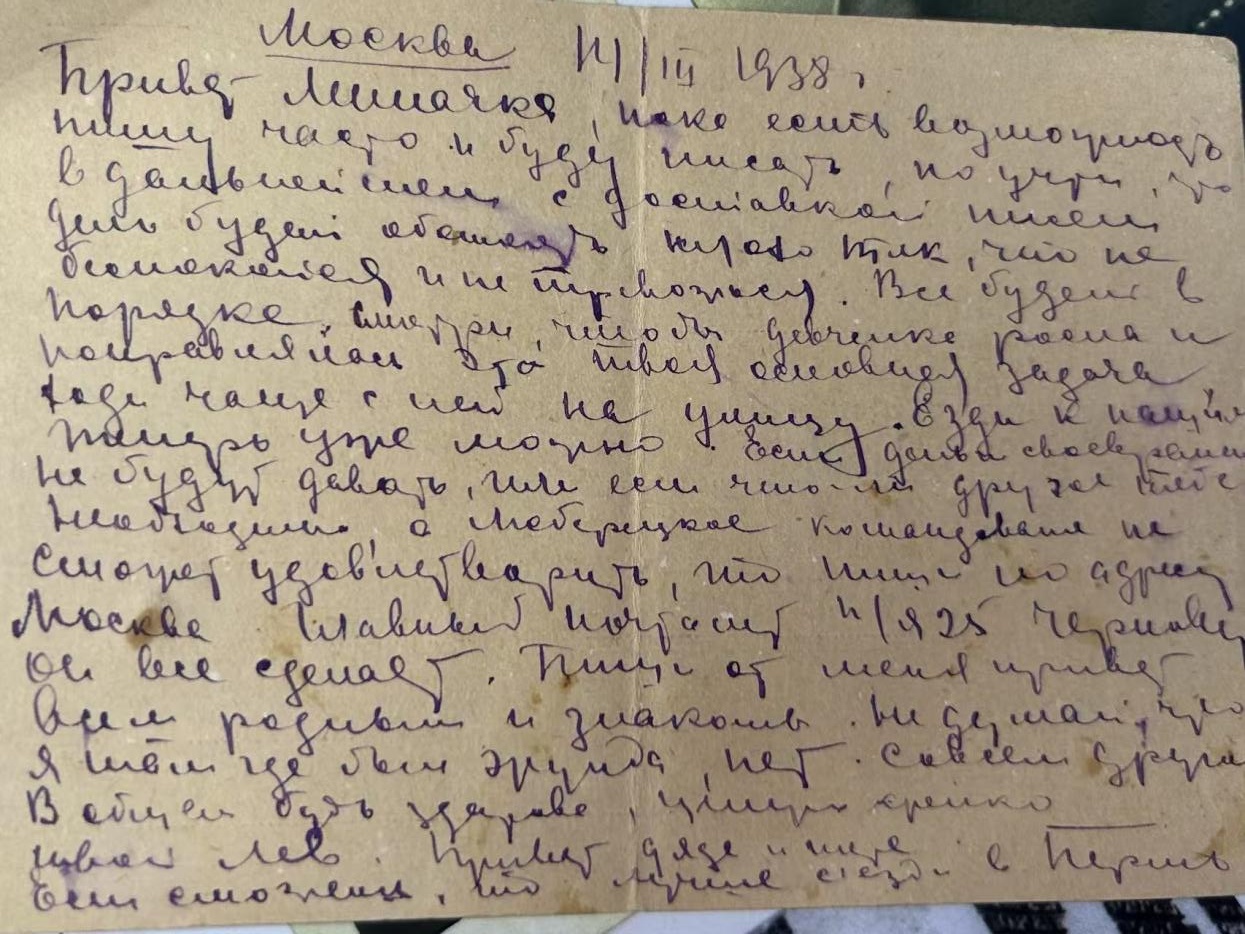 Москва 14/III 1938 г
Привет Мишачка, пока есть возможность
пишу часто и буду писать, но учти, что
в дальнейшем с доставкой писем
дело будет обстоять так, что не
беспокойся и не тревожься. Все будет в
порядке. Смотри, чтобы девченка росла и
поправлялась это твоя основная задача,
ходи чаще с ней на улицу. Езди к нашим
теперь уже можно. Если деньги своевремен
не будут давать, или если что-ли другое тебе
необходимо, а командование не
сможет удовлетворить, то пиши по адресу
Москва Главный почтамт п/я 25 Чернову
он все сделает. Пиши от меня привет
всем родным и знакомым. Не думай, что
я там где был эрунда, нет. Совсем друго
В общем будь здорова, целую крепко
твой Лев. Привет дяде и тете
Если сможешь, то лучше съезди в Пермь